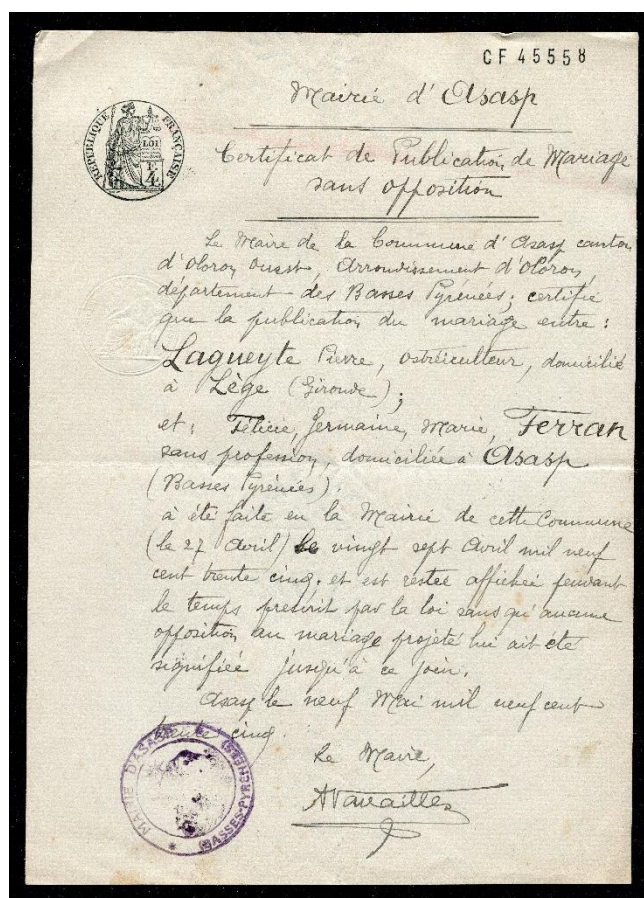 CF 45558
REPUBLIQUE FRANÇAISE
LOI
F.
4
Mairie d'Asasp
Certificat de Publication de Mariage
sans opposition
Le Maire de la Commune d'Asasp canton
d'Oloron Ouest, Arrondissement d'Oloron,
département des Basses Pyrénées; certifie
que la publication du mariage entre :
Lagueyte Pierre, ostréiculteur, domicilié
à Lège (Gironde);
et; Félicie, Germaine, Marie, Ferran
sans profession, domiciliée à Asasp
(Basses Pyrénées).
à été faite en la Mairie de cette Commune
(le 27 Avril) le vingt sept Avril mil neuf
cent trente cinq. et est restée affichée pendant
le temps prescrit par la loi sans qu'aucune
opposition au mariage projeté lui ait été
signifiée jusqu'à ce jour.
Asasp le neuf Mai mil neuf cent
trente cinq.
Le Maire,
MAIRIE D'ASASP
(BASSES-PYRÉNÉES)